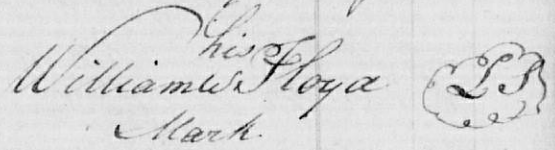 his
William W Floyd LS
Mark